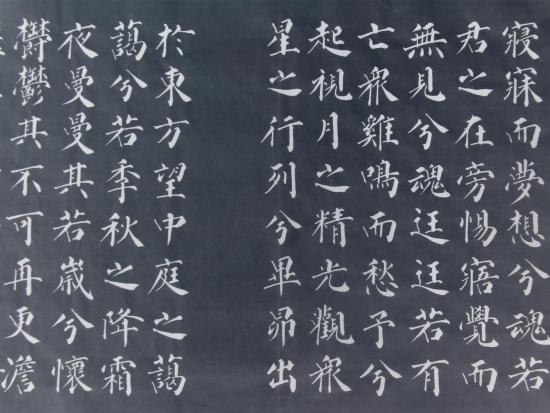 寢寐而夢想兮魂若
君之在旁惕寤覺而
無見兮魂迋迋若有
亡衆雞鳴而愁予兮
起視月之精光觀衆
星之行列兮畢昴出
於東方望中庭之藹
藹兮若季秋之降霜
夜曼曼其若歲兮懷
鬱鬱其不可再更澹